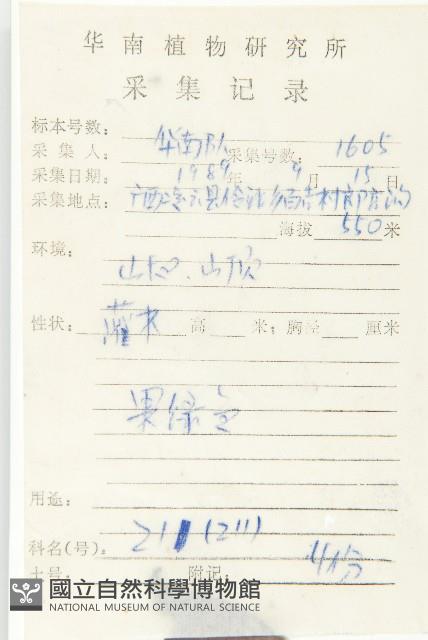 华南植物研究所
采集记录
标本号数：
采集人： 华南队 采集号数： 1605
采集日期： 1989年 9月 15日
采集地点： 广西
海拔 550 米
环境：
山坡、山顶
性状： 灌木 高 米；胸径 厘米
果绿色
用途：
科名(号)。 211 (211)
土号： 附记：
國立自然科學博物館
NATIONAL MUSEUM OF NATURAL SCIENCE